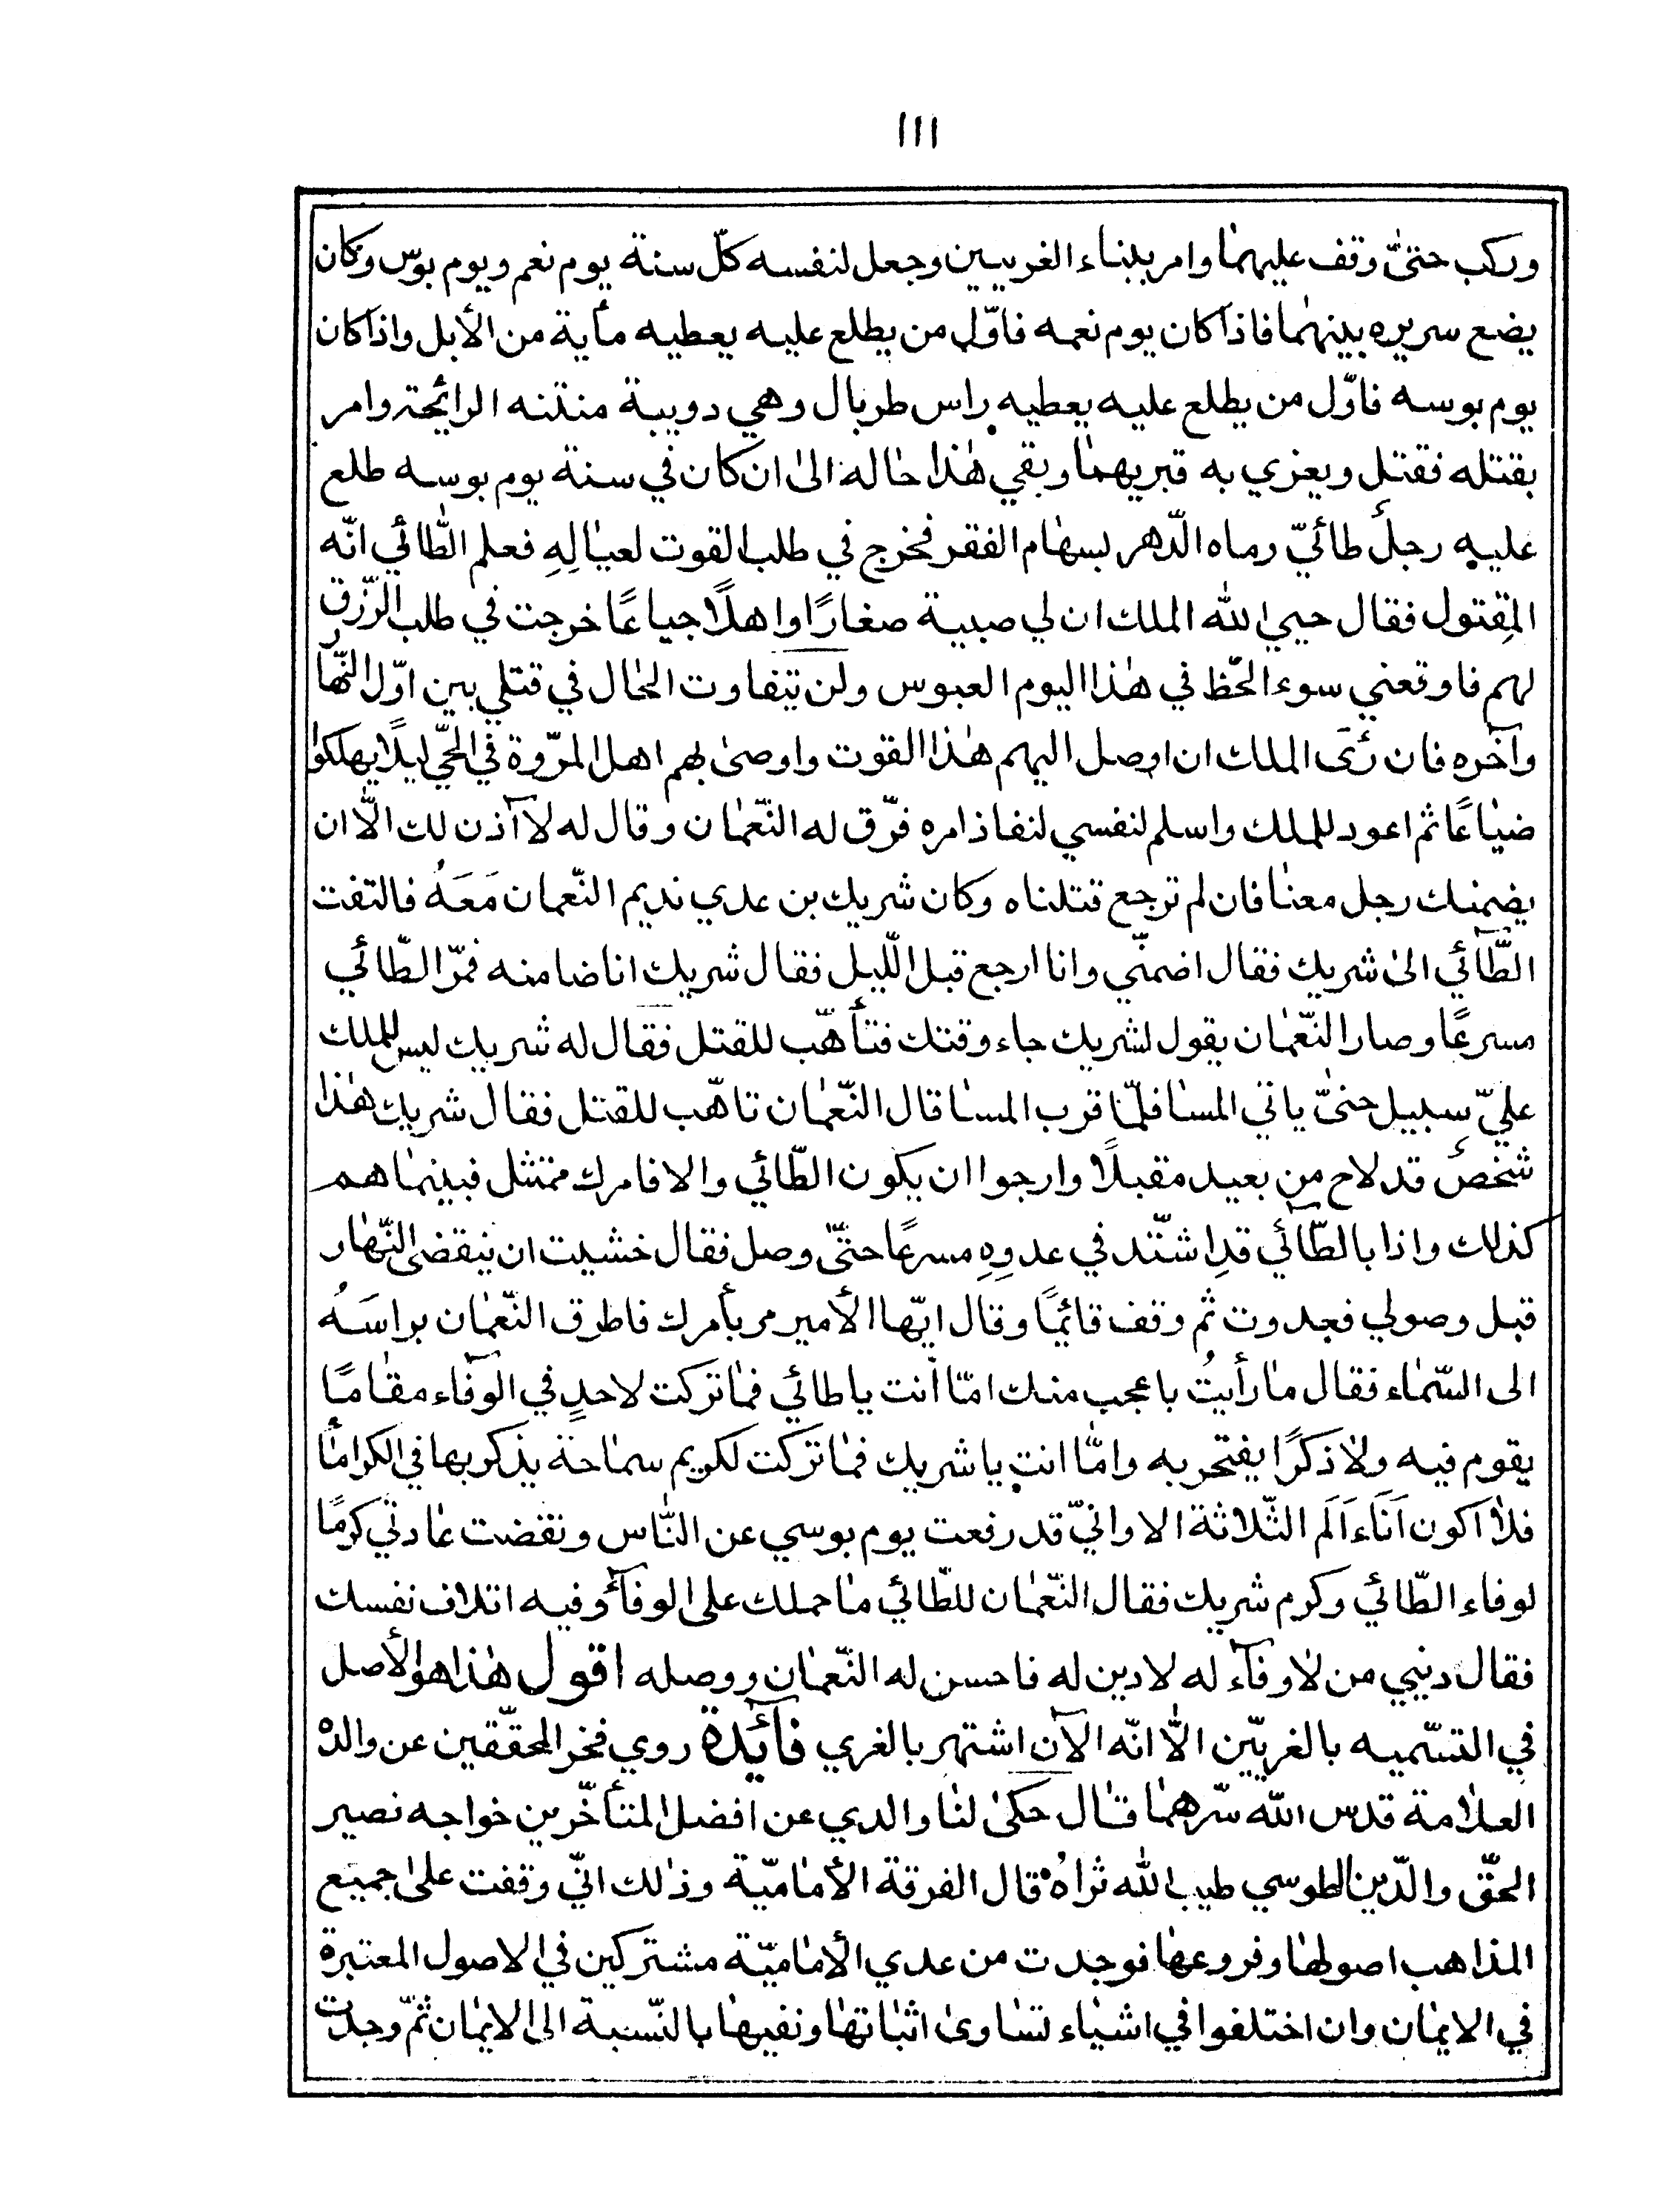 ١١١
وركب حتىٰ وقف عليهمٰا وامر ببناء الغرييين وجعل لنفسه كلّ سنة يوم نعم ويوم بوس وكان
يضع سريره بينهمٰا فاذا كان يوم نعمه فاوّل من يطلع عليه يعطيه مأية من الأبل واذا كان
يوم بوسه فاوّل من يطلع عليه يعطيه راس طربال وهي دويبة منتنه الرائحة وامر
بقتله فقتل ويغري به قبريهمٰا وبقي هٰذا حٰاله الىٰ ان كان في سنة يوم بوسه طلع
عليه رجلٌ طائيّ رماه الدّهر بسهٰام الفقر فخرج في طلب القوت لعيٰالِهِ فعلم الطّائي انّه
المقتول فقال حيي الله الملك ان لي صبية صغارًا واهلًا جياعًا خرجت في طلب الرّزق
لهم فاوقعني سوء الحّظ في هٰذا اليوم العبوس ولن يتفاوت الحٰال في قتلي بين اوّل النّهار
وآخره فان رئى الملك ان اوصل اليهم هٰذا القوت واوصىٰ بهم اهل المرّوة في الحّي ليلًا يهلكوا
ضيٰاعًا ثم اعود للملك واسلم لنفسي لنفاذ امره فرّق له النّعمٰان وقال له لا آذن لك الّا ان
يضمنك رجل معنٰا فان لم ترجع قتلناه وكان شريك بن عدي نديم النّعمان مَعَهُ فالتفت
الطّائي الىٰ شريك فقال اضمنّي وانا ارجع قبل اللّيل فقال شريك انا ضامنه فمرّ الطّائي
مسرعًا وصار النّعمٰان يقول لشريك جاء وقتك فتأهّب للقتل فقال له شريك ليس للملك
عليّ سبيل حتىّٰ ياتي المسٰا فلمّا قرب المسٰا قال النّعمٰان تاهّب للقتل فقال شريك هٰذا
شخصٌ قد لاح من بعيد مقبلًا وارجوا ان يكون الطّائي والا فامرك ممتثل فبينمٰا هم
كذلك واذا بالطّائي قدِ اشتّد في عدوِهِ مسرعًا حتىّ وصل فقال خشيت ان ينقضى النّهٰار
قبل وصولي فعدوت ثم وقف قائمًا وقال ايّها الأمير مر بأمرك فاطرق النّعمٰان براسَهُ
الى السّمٰاء فقال مٰا رأيتُ باعجب منك امّا أنت يا طائي فمٰا تركت لاحدٍ في الوفاء مقٰامًا
يقوم فيه ولاذكرًا يفتخر به وامّا انت يا شريك فمٰا تركت لكريم سمٰاحة يذكر بها في الكرامٰا
فلٰا اكون اَنَاء اَلَم الثّلاثة الا وانيّ قد رفعت يوم بوسي عن النّاس ونقضت عٰادتي كرمًا
لوفاء الطّائي وكرم شريك فقال النّعمٰان للطّائي مٰا حملك على الوفآؤ وفيه اتلاف نفسك
فقال ديني من لٰا وفآء له لا دين له فاحسن له النّعمٰان ووصله اقول هٰذا هو الأصل
في التسّميه بالغريّين الّا انّه الآن اشتهر بالغري فآئدة روي فخر المحقّقين عن والده
العلٰامة قدس الله سّرهمٰا قال حكىٰ لنٰا والدي عن افضل المتأخّرين خواجه نصير
الحقّ والدّين الطوسي طيب الله ثراهُ قال الفرقة الأمٰاميّة وذٰلك انيّ وقفت علىٰ جميع
المذاهب اصولهٰا وفروعهٰا فوجدت من عدي الأمٰاميّة مشتركين في الاصول المعتبرة
في الايمٰان وان اختلفوا في اشيٰاء تسٰاوىٰ اثبٰاتهٰا ونفيهٰا بالنّسبة الى الايمٰان ثمّ وجدت